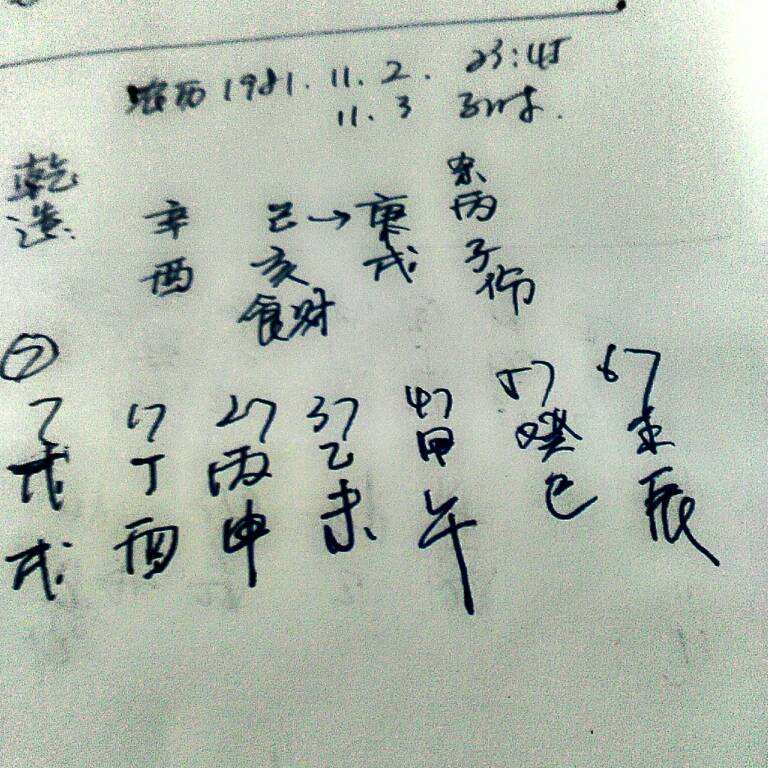 农历 1981. 11. 2. 23:45
11. 3 子时.
乾 杀
造 辛 己→庚 丙
酉 亥 戌 子
食财 伤
⑦
7 17 27 37 47 57 67
戊 丁 丙 乙 甲 癸 壬
戌 酉 申 未 午 巳 辰